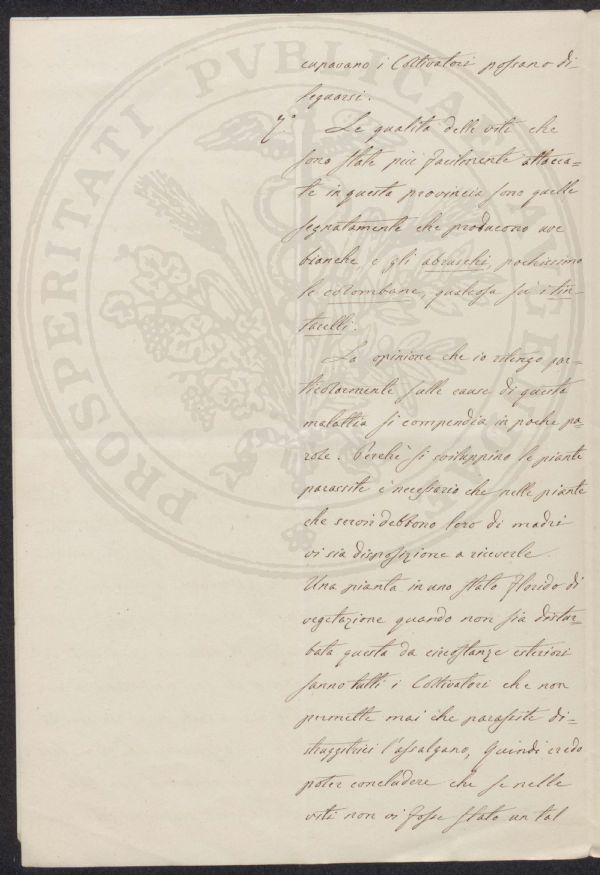 cupavano i Coltivatori possano di
seguarsi.
7° Le qualità delle viti che
sono state più facilmente attacca=
te in questa provincia sono quelle
segnatamente che producono uve
bianche e gli abruschi, pochissimo
le colombane, qualcosa su i tin=
tarelli.
La opinione che io ritengo par=
ticolarmente sulle cause di questa
malattia si compendia in poche pa=
role. Perchè si sviluppino le piante
parassite è necessario che nelle piante
che servir debbono loro di madri
vi sia disposizione a riceverle.
Una pianta in uno stato florido di
vegetazione quando non sia distur=
bata questa da circostanze esteriori
sanno tutti i Coltivatori che non
permette mai che parassite di=
struggitrici l'assalgano, Quindi credo
poter concludere che se nelle
viti non vi fosse stato un tal
PROSPERITATI PVBLICAE AVGENDAE